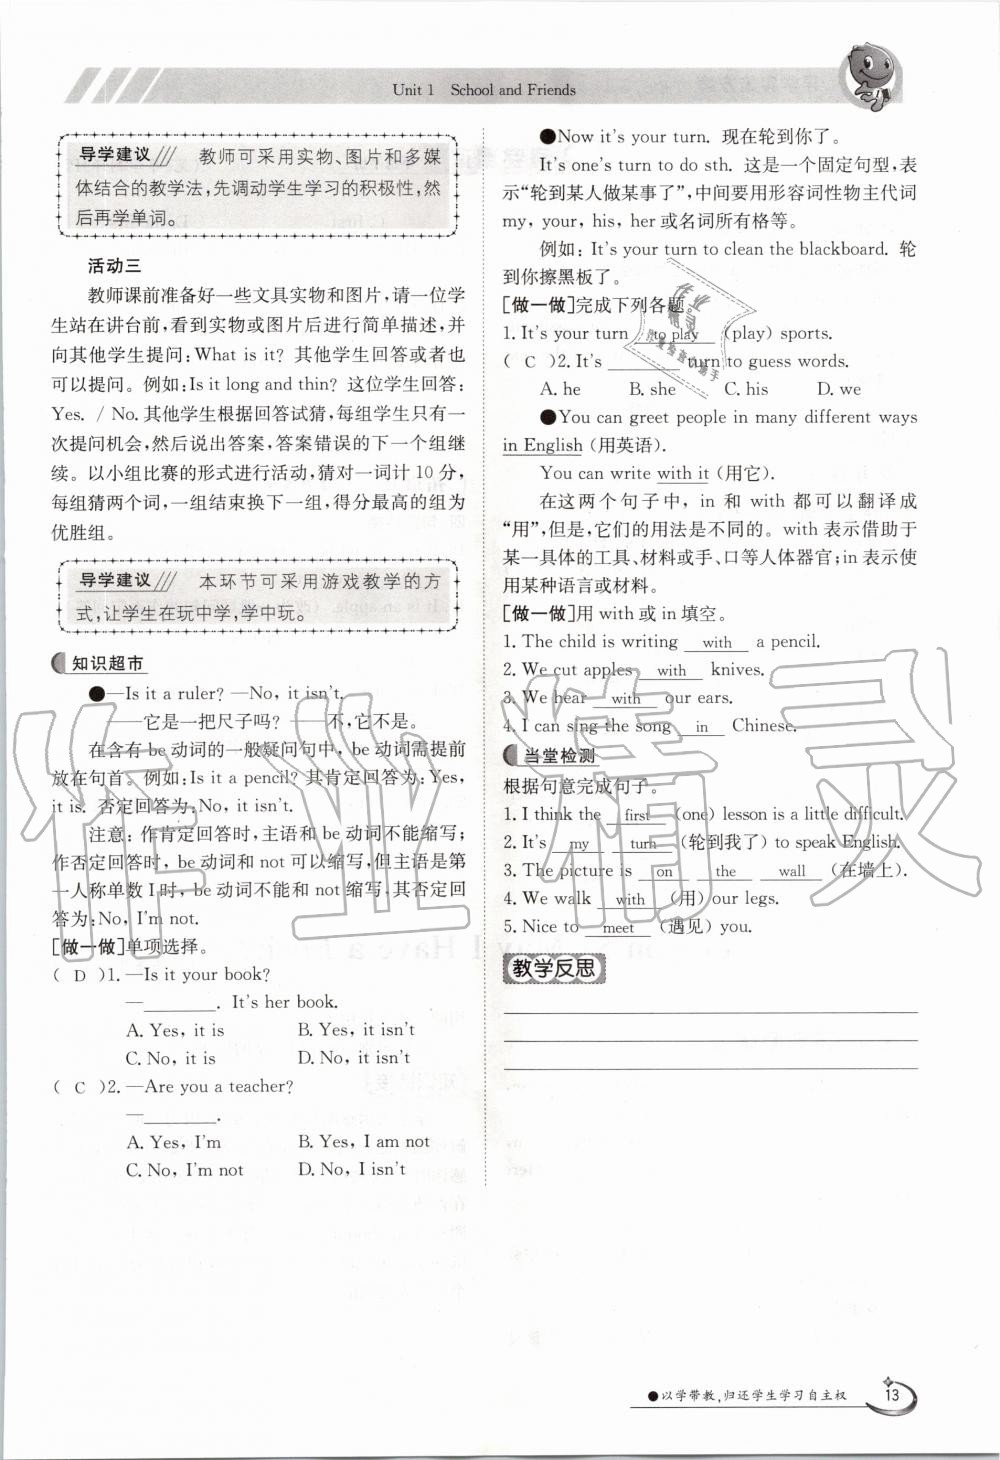 Unit 1 School and Friends
导学建议 教师可采用实物、图片和多媒
体结合的教学法,先调动学生学习的积极性,然
后再学单词。
活动三
教师课前准备好一些文具实物和图片,请一位学
生站在讲台前,看到实物或图片后进行简单描述,并
向其他学生提问:What is it? 其他学生回答或者也
可以提问。例如:Is it long and thin? 这位学生回答:
Yes. / No. 其他学生根据回答试猜,每组学生只有一
次提问机会,然后说出答案,答案错误的下一个组继
续。以小组比赛的形式进行活动,猜对一词计 10 分,
每组猜两个词,一组结束换下一组,得分最高的组为
优胜组。
导学建议 本环节可采用游戏教学的方
式,让学生在玩中学,学中玩。
知识超市
●—Is it a ruler? —No, it isn't.
——它是一把尺子吗? ——不,它不是。
在含有 be 动词的一般疑问句中,be 动词需提前
放在句首。例如:Is it a pencil? 其肯定回答为:Yes,
it is. 否定回答为:No, it isn't.
注意:作肯定回答时,主语和 be 动词不能缩写;
作否定回答时,be 动词和 not 可以缩写,但主语是第
一人称单数 I 时,be 动词不能和 not 缩写,其否定回
答为:No, I'm not.
[做一做]单项选择。
( D )1. —Is it your book?
—________. It's her book.
A. Yes, it is B. Yes, it isn't
C. No, it is D. No, it isn't
( C )2. —Are you a teacher?
—________.
A. Yes, I'm B. Yes, I am not
C. No, I'm not D. No, I isn't
●Now it's your turn. 现在轮到你了。
It's one's turn to do sth. 这是一个固定句型,表
示“轮到某人做某事了”,中间要用形容词性物主代词
my, your, his, her 或名词所有格等。
例如:It's your turn to clean the blackboard. 轮
到你擦黑板了。
[做一做]完成下列各题。
1. It's your turn to play (play) sports.
( C )2. It's ________ turn to guess words.
A. he B. she C. his D. we
●You can greet people in many different ways
in English (用英语).
You can write with it (用它).
在这两个句子中, in 和 with 都可以翻译成
“用”,但是,它们的用法是不同的。with 表示借助于
某一具体的工具、材料或手、口等人体器官;in 表示使
用某种语言或材料。
[做一做]用 with 或 in 填空。
1. The child is writing with a pencil.
2. We cut apples with knives.
3. We hear with our ears.
4. I can sing the song in Chinese.
当堂检测
根据句意完成句子。
1. I think the first (one) lesson is a little difficult.
2. It's my turn (轮到我了) to speak English.
3. The picture is on the wall (在墙上).
4. We walk with (用) our legs.
5. Nice to meet (遇见) you.
教学反思
●以学带教,归还学生学习自主权 13
作业精灵